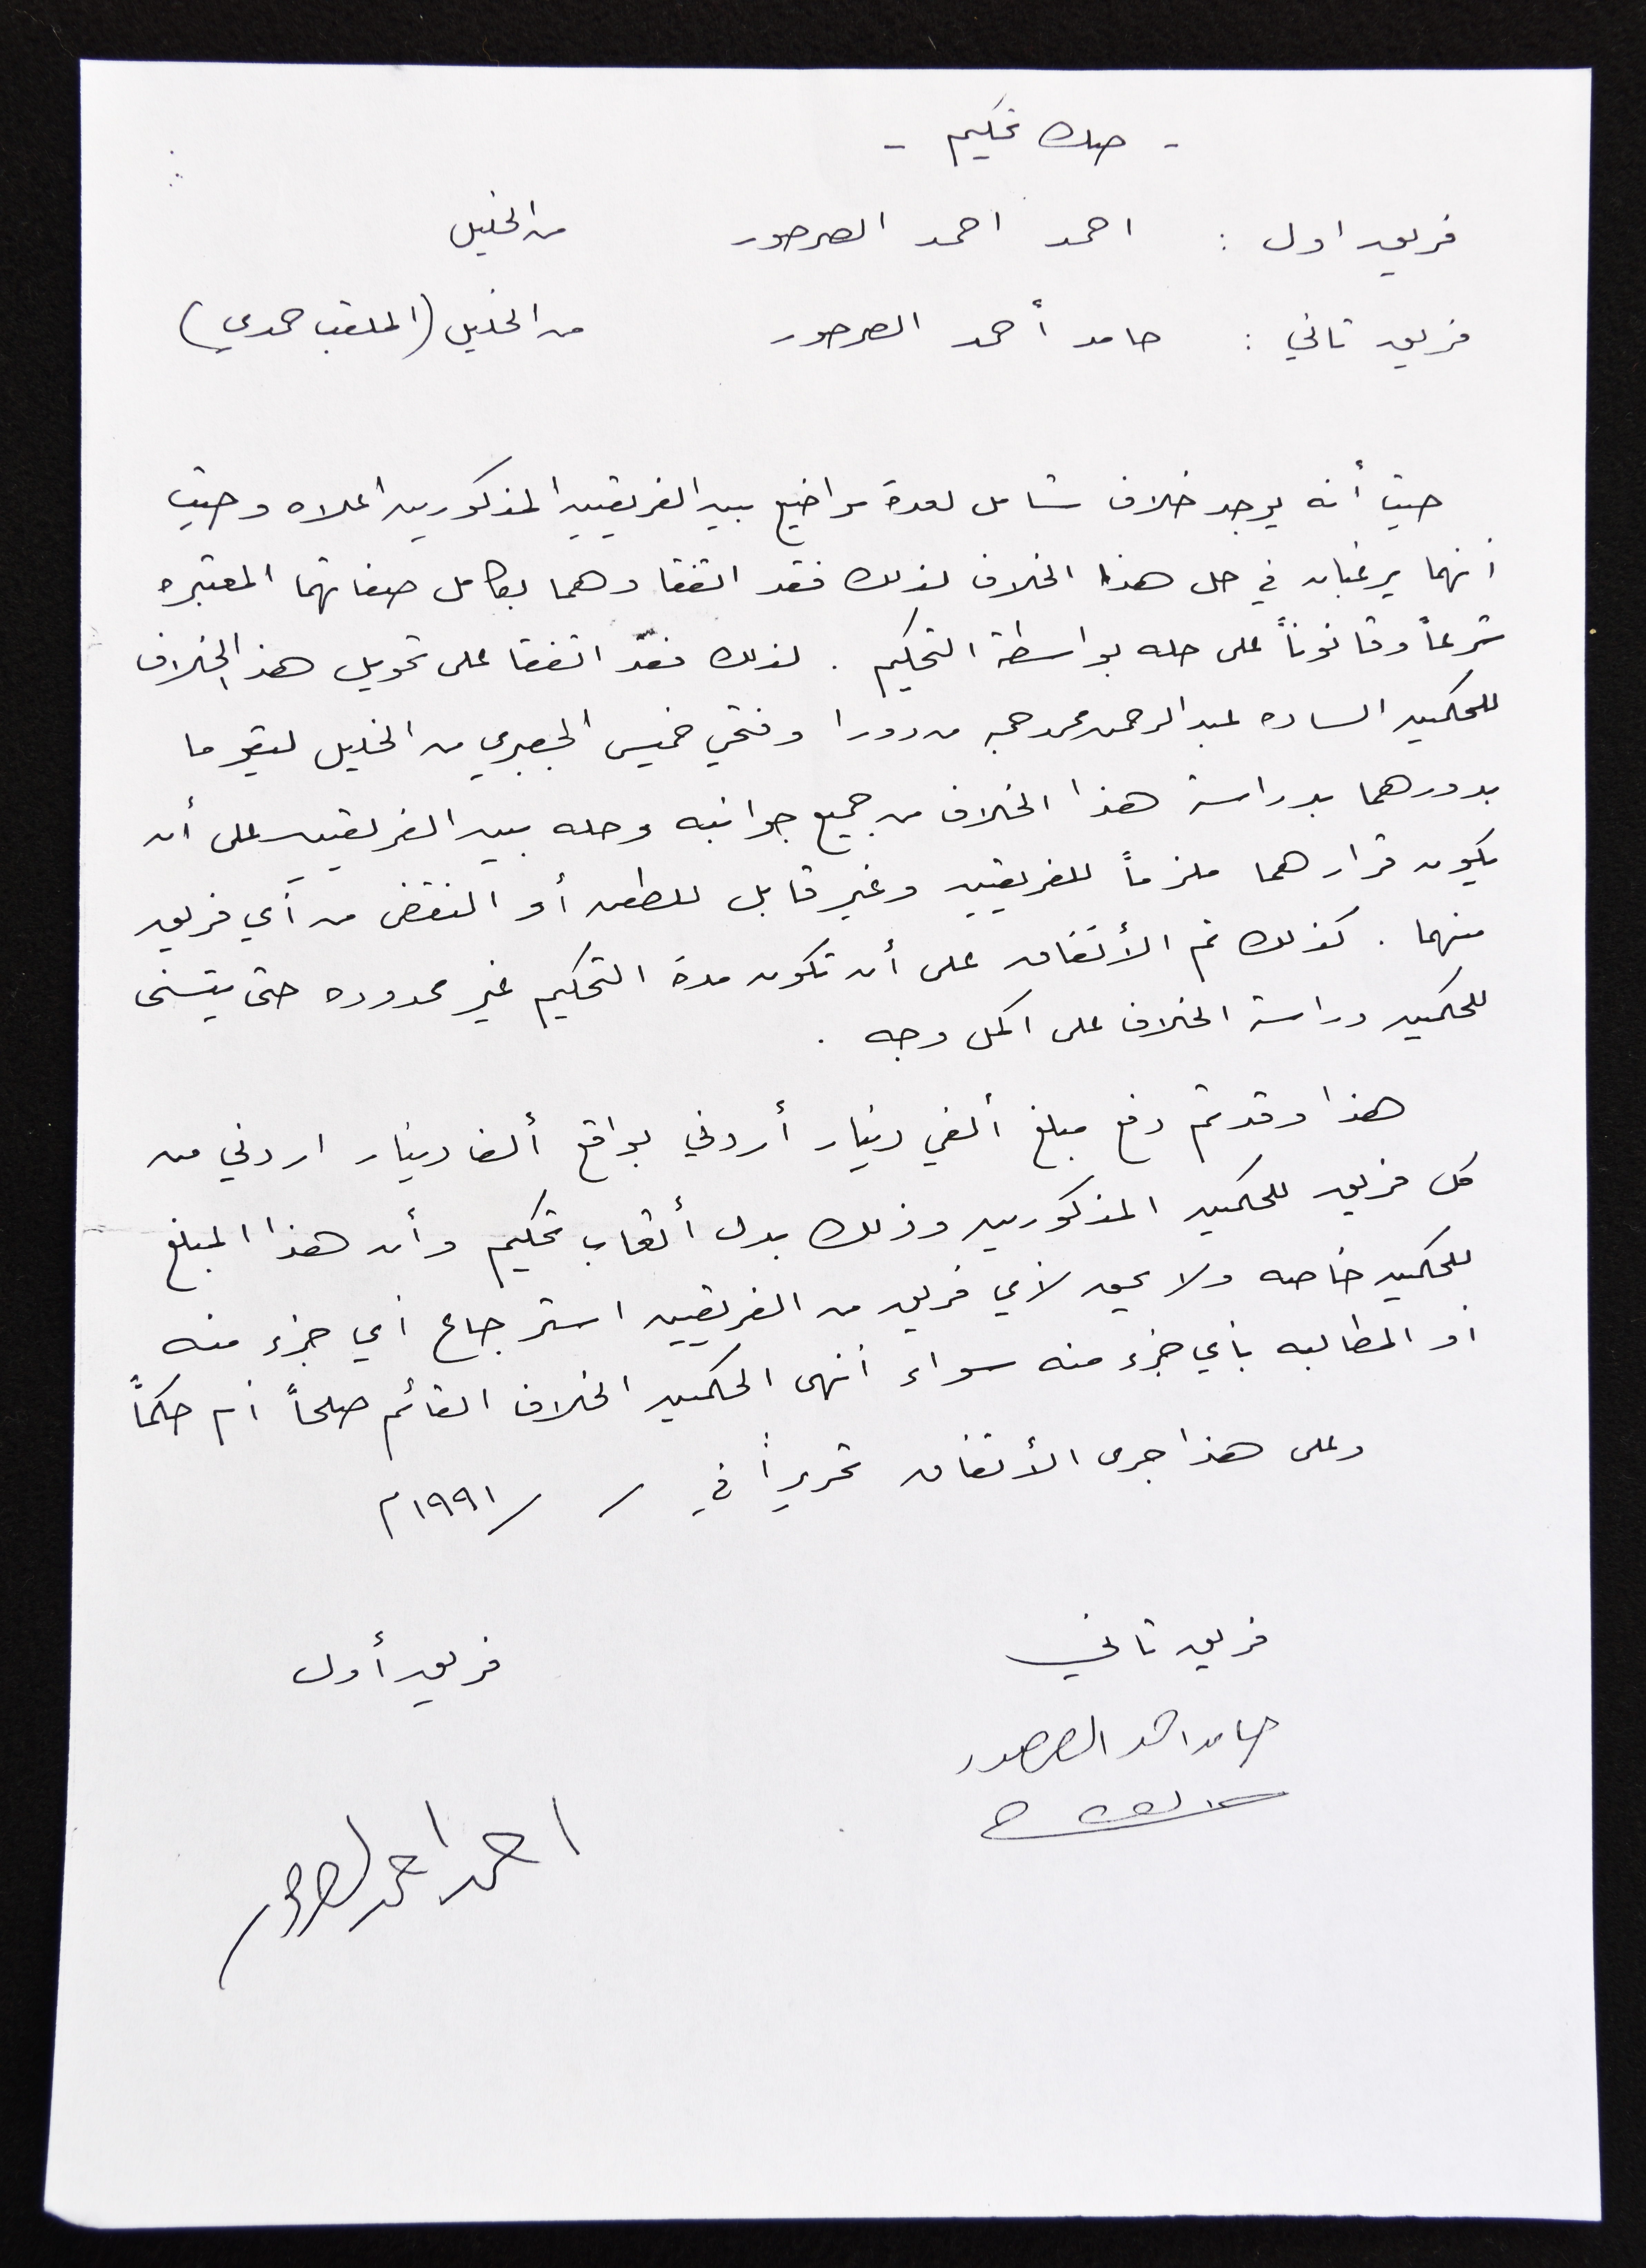 - صك تحكيم -
فريق اول : احمد احمد الصرصور من الخليل
فريق ثاني : حامد أحمد الصرصور من الخليل (الملقب حمدي)
حيث أنه يوجد خلاف شامل لعدة مواضيع بين الفريقين المذكورين اعلاه وحيث
أنهما يرغبان في حل هذا الخلاف لذلك فقد اتفقا وهما بكامل صفاتهما المعتبره
شرعاً وقانوناً على حله بواسطة التحكيم . لذلك فقد اتفقا على تحويل هذا الخلاف
للحكمين الساده عبد الرحمن محمد حجه من دورا وفتحي خميس الجعبري من الخليل ليقوما
بدورهما بدراسة هذا الخلاف من جميع جوانبه وحله بين الفريقين على أن
يكون قرارهما ملزماً للفريقين وغير قابل للطعن أو النقض من أي فريق
منهما . كذلك تم الأتفاق على أن تكون مدة التحكيم غير محدوده حتى يتسنى
للحكمين دراسة الخلاف على اكمل وجه .
هذا وقد تم دفع مبلغ ألفي دينار أردني بواقع ألف دينار اردني من
كل فريق للحكمين المذكورين وذلك بدل أتعاب تحكيم وأن هذا المبلغ
للحكمين خاصه ولا يحق لأي فريق من الفريقين استرجاع أي جزء منه
أو المطالبه بأي جزء منه سواء أنهى الحكمين الخلاف القائم صلحاً أم حكماً
وعلى هذا جرى الأتفاق تحريراً في / / ١٩٩١م
فريق ثاني فريق أول
حامد احمد الصرصور
احمد احمد الصرصور